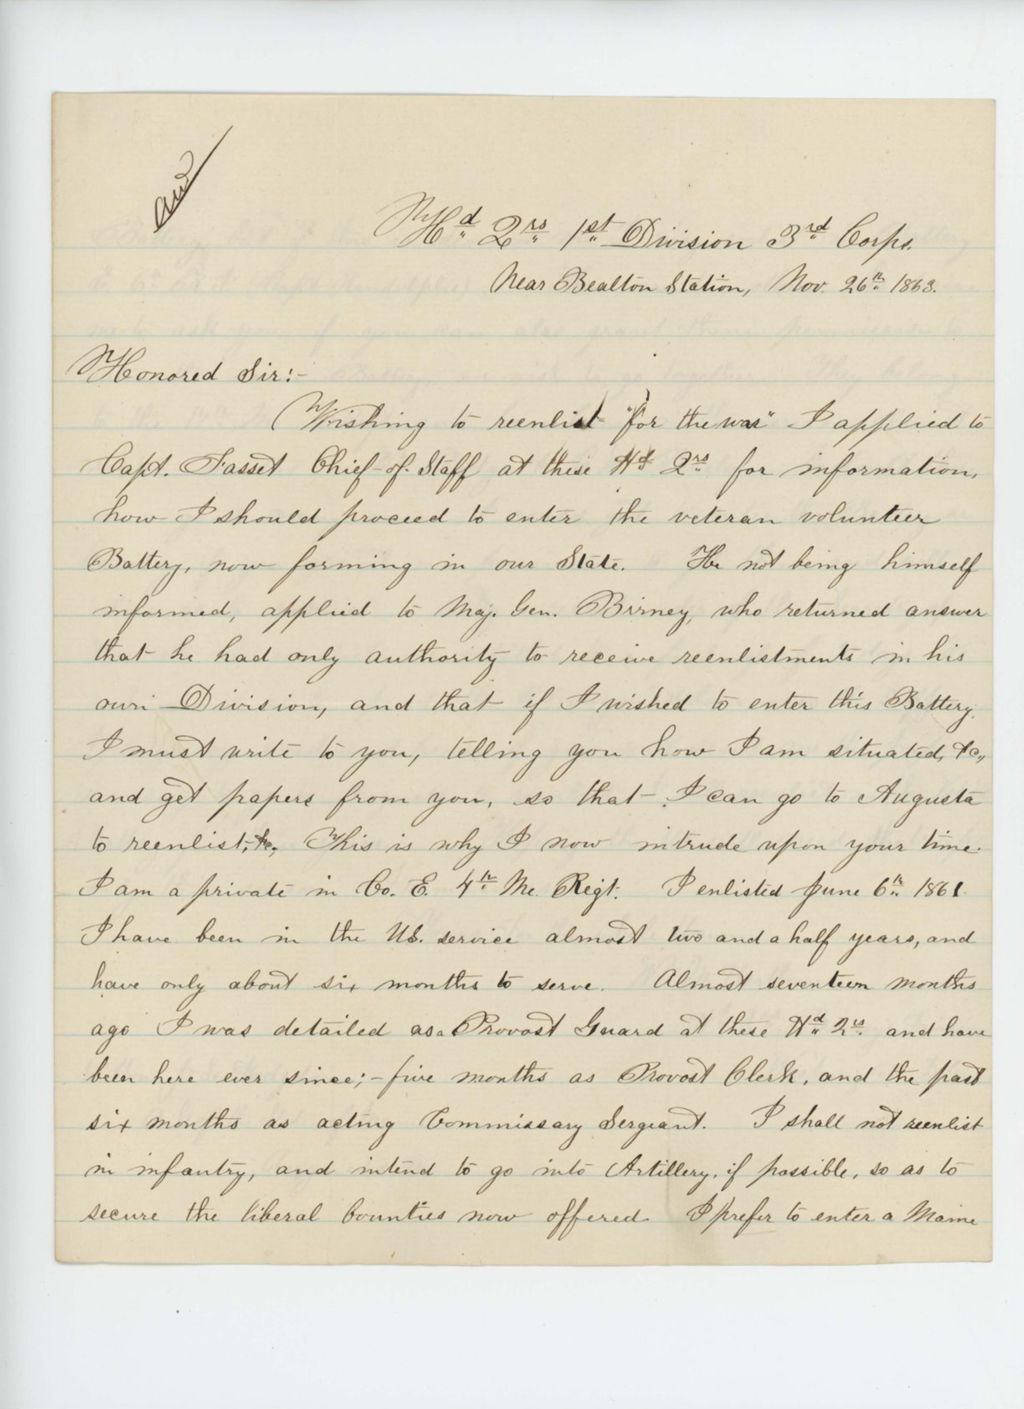 Hd Qrs 1st Division 3rd Corps.
Near Bealton Station, Nov. 26th 1863.
Honored Sir:-
Wishing to reenlist "for the war" I applied to
Capt. Fasset Chief of Staff at these Hd Qrs for information,
how I should proceed to enter the veteran volunteer
Battery, now forming in our State. He not being himself
informed, applied to Maj. Gen. Birney, who returned answer
that he had only authority to receive reenlistments in his
own Division, and that if I wished to enter this Battery.
I must write to you, telling you how I am situated, &c,
and get papers from you, so that I can go to Augusta
to reenlist, &c, This is why I now intrude upon your time.
I am a private in Co. E. 4th Me. Regt. I enlisted June 6th 1861.
I have been in the U.S. service almost two and a half years, and
have only about six months to serve. Almost seventeen months
ago I was detailed as a Provost Guard at these Hd Qrs. and have
been here ever since;- five months as Provost Clerk, and the past
six months as acting Commissary Sergeant. I shall not reenlist
in infantry, and intend to go into Artillery, if possible, so as to
secure the liberal bounties now offered. I prefer to enter a Maine